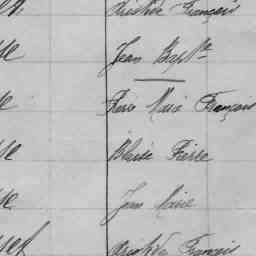 Aristide François
Jean Bapte
Pierre Marie François
Blaise Pierre
Jean Marie
Aristide François